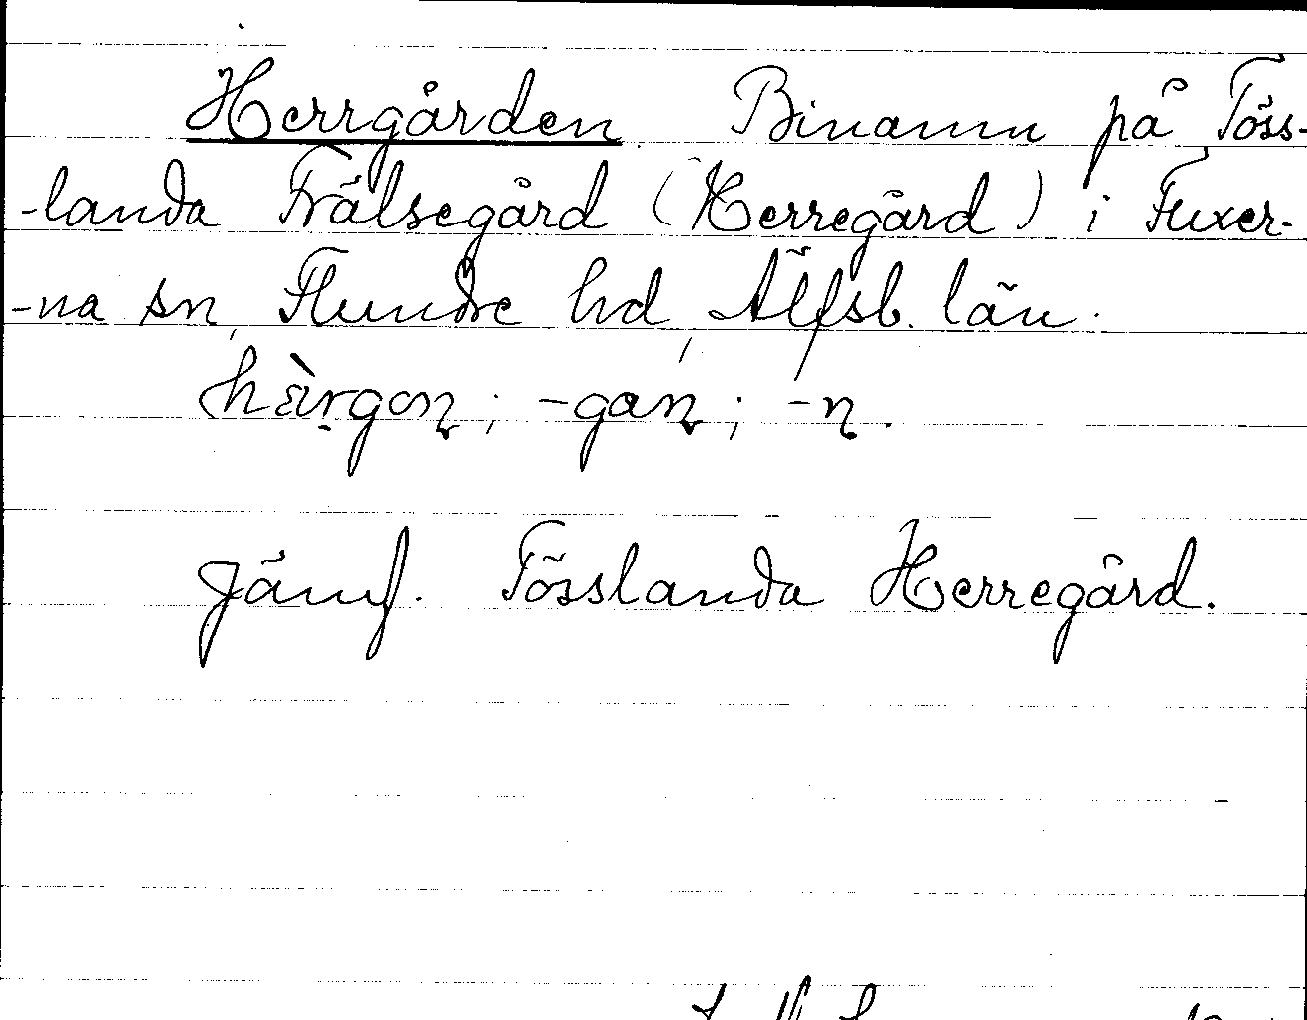 Herrgården Binamn på Töss-
-landa Frälsegård (Herregård) i Fuxer-
-na sn, Flundre hd, Älfsb. län.
hàrgon; -gan; -n.
Jämf. Tösslanda Herregård.